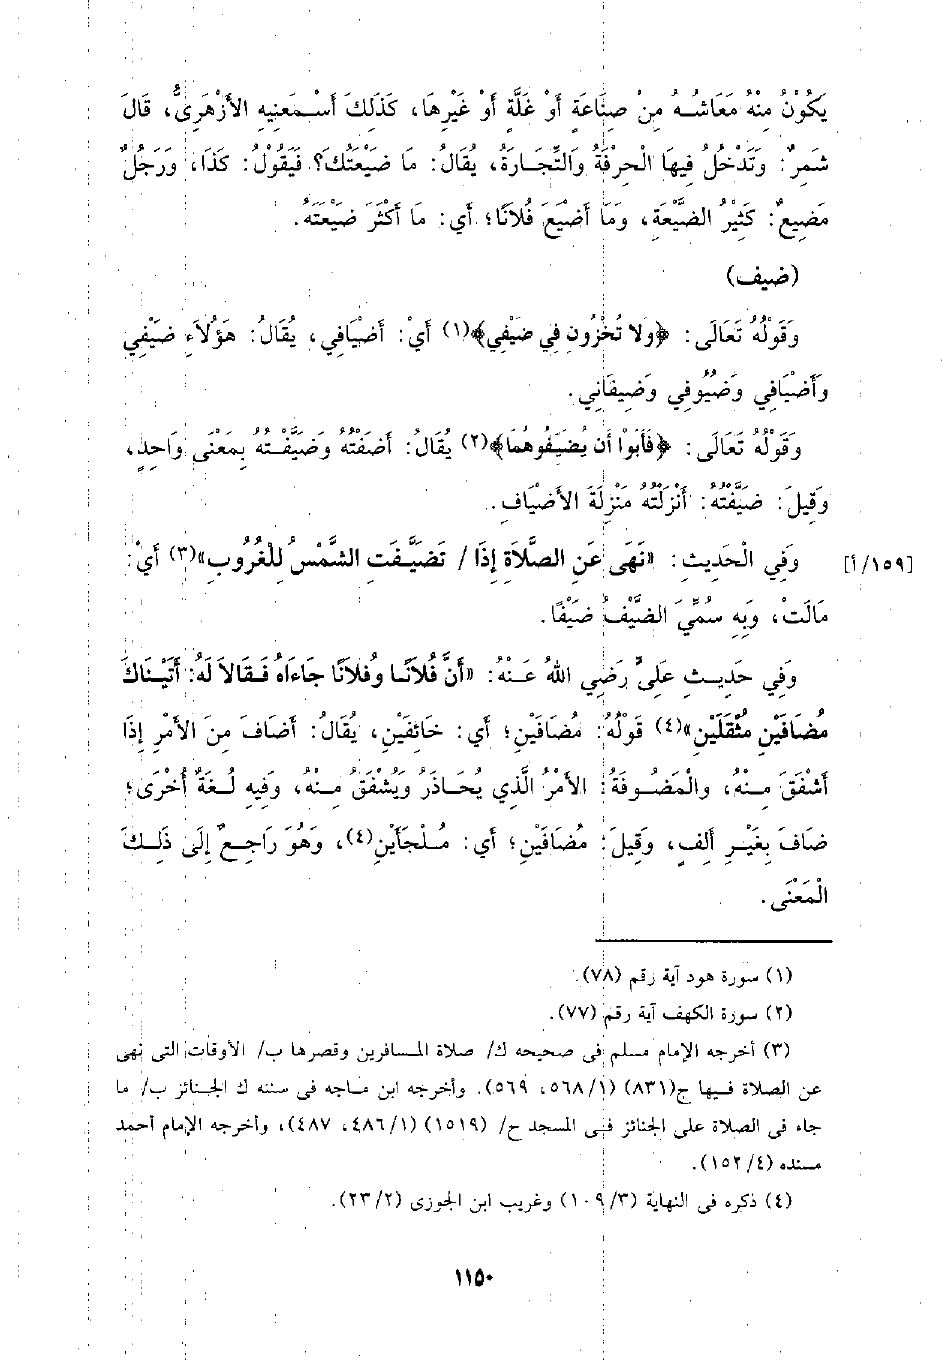 يَكُوْنُ مِنْهُ مَعَاشُهُ مِنْ صِنَاعَةٍ أَوْ غَلَّةٍ أَوْ غَيْرِهَا، كَذَلِكَ أَسْمَعَنِيهِ الأَزْهَرِىُّ، قَالَ
شَمِرٌ: وَتَدْخُلُ فِيهَا الْحِرْفَةُ وَالتِّجَارَةُ، يُقَالُ: مَا ضَيْعَتُكَ؟ فَيَقُوْلُ: كَذَا، وَرَجُلٌ
مَضِيعٌ: كَثِيْرُ الضَّيْعَةِ، وَمَا أَضْيَعَ فُلَانًا؛ أَي: مَا أَكْثَرَ ضَيْعَتَهُ.
(ضيف)
وَقَوْلُهُ تَعَالَى: ﴿ولا تُخْزُون فِي ضَيْفِي﴾(١) أَيْ: أَضْيَافِي، يُقَالُ: هَؤُلَاءِ ضَيْفِي
وَأَضْيَافِي وَضُيُوفِي وَضِيفَانِي.
وَقَوْلُهُ تَعَالَى: ﴿فَأَبَوْا أَن يُضَيِّفُوهُمَا﴾(٢) يُقَالُ: أَضَفْتُهُ وَضَيَّفْتُهُ بِمَعْنَى وَاحِدٍ،
وَقِيلَ: ضَيَّفْتُهُ: أَنْزَلْتُهُ مَنْزِلَةَ الأَضْيَافِ.
[١٥٩/أ] وَفِي الْحَدِيثِ: «نَهَى عَنِ الصَّلَاةِ إِذَا / تَضَيَّفَتِ الشَّمْسُ لِلْغُرُوبِ»(٣) أَيْ:
مَالَتْ، وَبِهِ سُمِّيَ الضَّيْفُ ضَيْفًا.
وَفِي حَدِيثِ عَلِىٍّ رَضِي اللهُ عَنْهُ: «أَنَّ فُلَانًا وفُلَانًا جَاءَاهُ فَقَالَا لَهُ: أَتَيْنَاكَ
مُضَافَيْنِ مُثْقَلَيْنِ»(٤) قَوْلُهُ: مُضَافَيْنِ؛ أَي: خَائِفَيْنِ، يُقَالُ: أَضَافَ مِنَ الأَمْرِ إِذَا
أَشْفَقَ مِنْهُ، والْمَضُوفَةُ: الأَمْرُ الَّذِي يُحَاذَرُ وَيُشْفَقُ مِنْهُ، وَفِيهِ لُغَةٌ أُخْرَى؛
ضَافَ بِغَيْرِ أَلِفٍ، وَقِيلَ: مُضَافَيْنِ؛ أَي: مُلْجَأَيْنِ(٤)، وَهُوَ رَاجِعٌ إِلَى ذَلِكَ
الْمَعْنَى.
(١) سورة هود آية رقم (٧٨).
(٢) سورة الكهف آية رقم (٧٧).
(٣) أخرجه الإمام مسلم فى صحيحه ك/ صلاة المسافرين وقصرها ب/ الأوقات التى نهى
عن الصلاة فيها ح(٨٣١) (١/ ٥٦٨، ٥٦٩). وأخرجه ابن ماجه فى سننه ك الجنائز ب/ ما
جاء فى الصلاة على الجنائز فى المسجد ح/ (١٥١٩) (١/ ٤٨٦، ٤٨٧)، وأخرجه الإمام أحمد
مسنده (٤/ ١٥٢).
(٤) ذكره فى النهاية (٣/ ١٠٩) وغريب ابن الجوزى (٢/ ٢٣).
١١٥٠